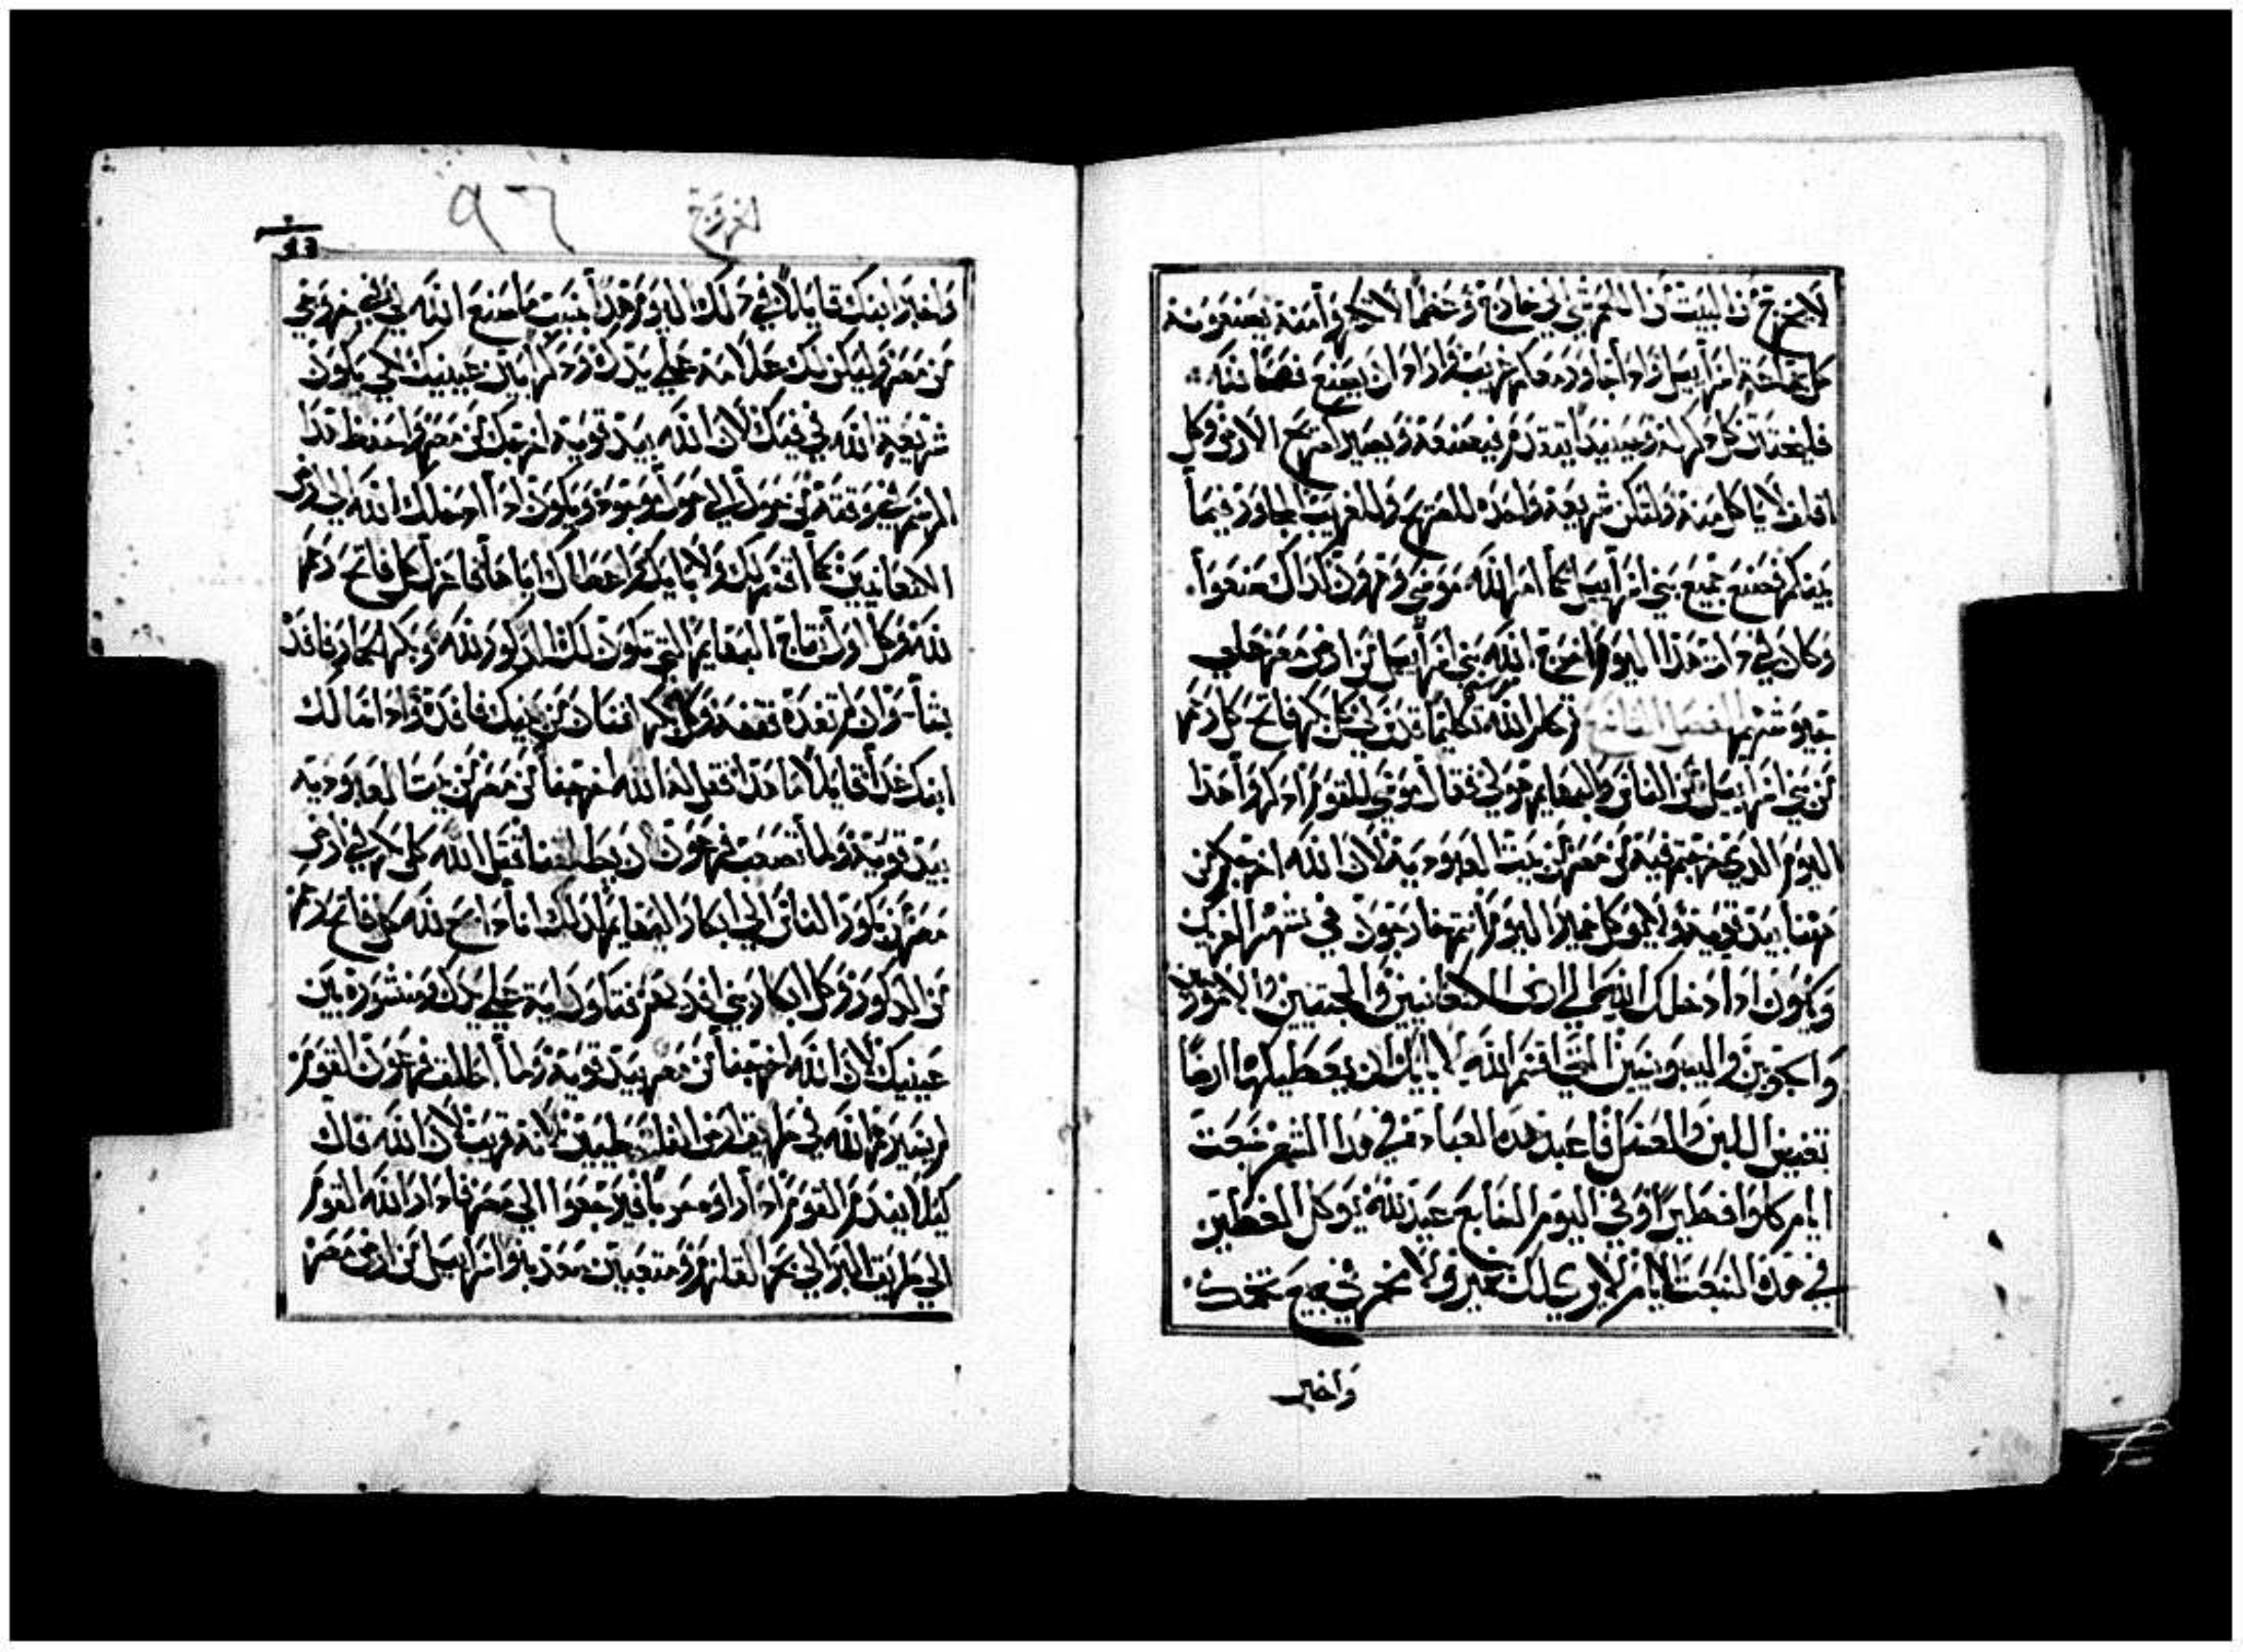 لا يخرج من البيت من اللحم شي الى خارج وعظما لا تكسروا منه يصنعونه
كل جماعة اسرايل واذا جاوركم غريب واراد ان يصنع فصحا لله
فليختتن كل ذكر له وحينيذ يتقدم فيصنعه ويصير كصريح الارض وكل
اقلف لا ياكل منه ولتكن شريعة واحدة للصريح وللغريب المجاور فيما
بينكم فصنع جميع بني اسرايل كما امر الله موسى وهرون كذلك صنعوا
وكان في ذات هذا اليوم اخرج الله بني اسرايل من ارض مصر على
جيوشهم الفصل الثالث ثم كلم الله موسى تكليما قدس لي كل بكر فاتح كل رحم
من بني اسرايل من الناس والبهايم هو لي فقال موسى للقوم اذكروا هذا
اليوم الذي خرجتم فيه من مصر من بيت العبودية لان الله اخرجكم من
ههنا بيد قوية ولا يوكل خمير اليوم انتم خارجون في شهر الفريك
ويكون اذا ادخلك الله الى ارض الكنعانيين والحيثيين والاموريين
والحويين واليبوسيين التي اقسم الله لابايك ان يعطيكها ارضا
تفيض اللبن والعسل فاعبد هذه العبادة في هذا الشهر سبعة
ايام كلوا فطيرا وفي اليوم السابع عيد لله يوكل الفطير
في هذه السبعة الايام لا يرى لك خمير ولا خمر في جميع تخمك
واخبر
الخروج
٩٦
93
واخبر ابنك قايلا في ذلك اليوم هذا بسبب ما صنع الله لي في خروجي
من مصر وليكن لك علامة على يدك وذكرا بين عينيك لكي يكون
شريعة الله في فيك لان الله بيد قوية اخرجك من مصر واحفظ هذا
الرسم في وقته من حول الى حول ويكون اذا ادخلك الله الى ارض
الكنعانيين كما اقسم لك ولابايك واعطاك اياها فاعزل كل فاتح رحم
لله وكل اول نتاج البهايم التي تكون لك الذكور لله وبكر الحمار فافده
بشاة وان لم تفده فقفه وكل بكر انسان من بنيك فافده واذا سالك
ابنك غدا قايلا ما هذا فقل له الله اخرجنا من مصر من بيت العبودية
بيد قوية ولما تصعب فرعون ان يطلقنا فقتل الله كل بكر في ارض
مصر من بكور الناس الى ابكار البهايم لذلك انا ذابح لله كل فاتح رحم
من الذكور وكل ابكار بني افديهم فتكون اية على يدك ومنشورة بين
عينيك لان الله اخرجنا من مصر بيد قوية ولما اطلق فرعون القوم
لم يسيرهم الله في طريق ارض الفلسطيين لانه قريب لان الله قال
كيلا يندم القوم اذا راوا حربا فيرجعوا الى مصر فادار الله القوم
الى طريق البر الى بحر القلزم ومتعبيين صعد بنوا اسرايل من ارض مصر